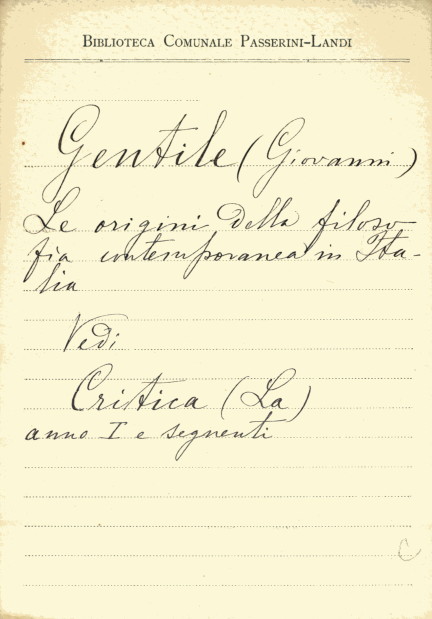 BIBLIOTECA COMUNALE PASSERINI-LANDI
Gentile (Giovanni)
Le origini della filoso
fia contemporanea in Ita-
lia
Vedi
Critica (La)
anno I e seguenti
C